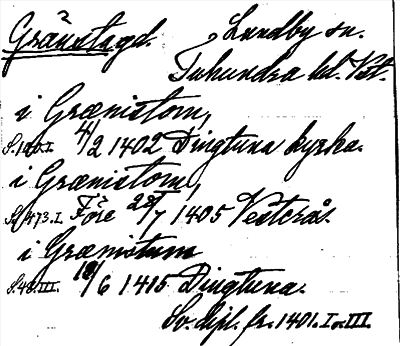 Gränstagd. Lundby sn.
Tuhundra hd. Vst.
i Grænistom,
4/2 1402 Dingtuna kyrka.
i Grænistom,
S. 473. I. Före 28/7 1405 Vesterås.
i Grænistum
S. 48. III. 18/6 1415 Dingtuna.
Sv. dipl. fr. 1401. I o. III.